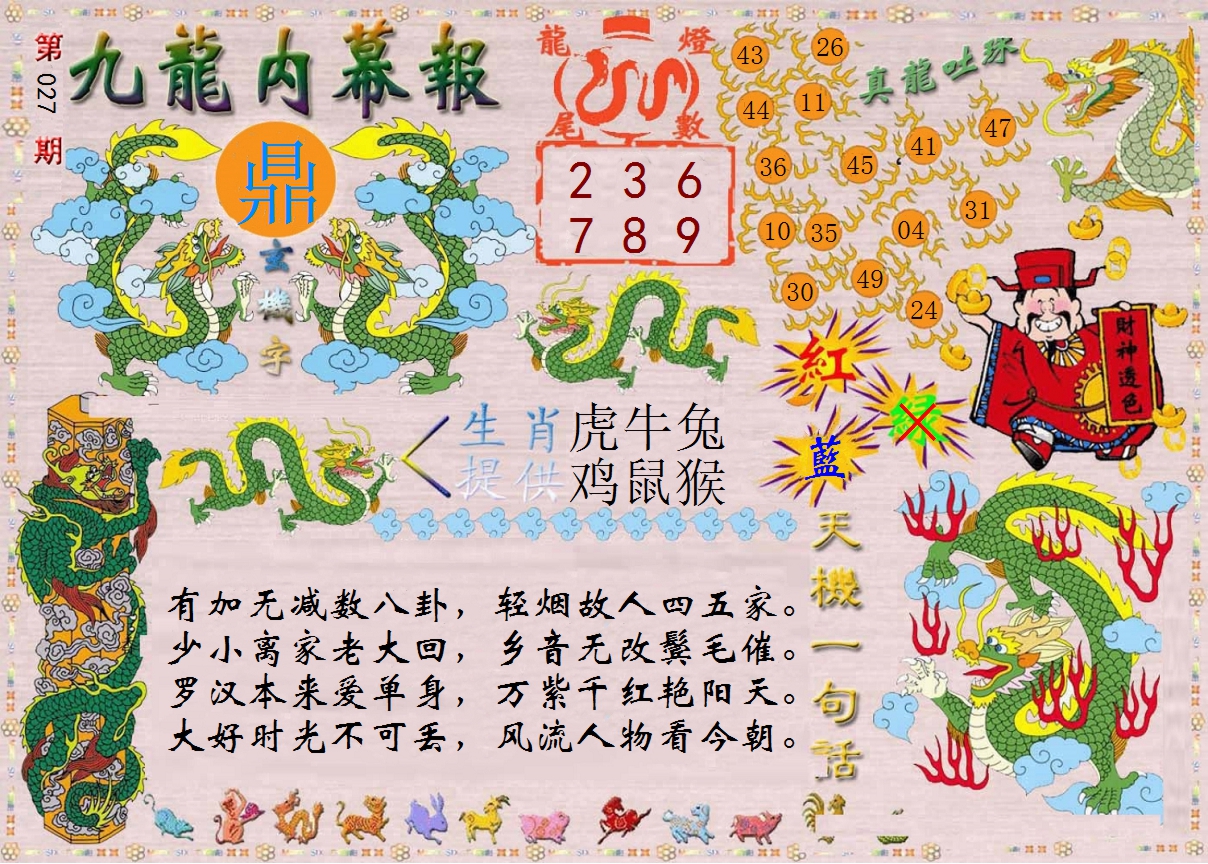 第027期
九龍内幕報
鼎
玄機字
龍燈尾數
2 3 6
7 8 9
真龍吐珠
43
26
44
11
36
45
41
47
10
35
04
31
30
49
24
財神透色
紅
绿
藍
生肖提供
虎牛兔
鸡鼠猴
天機一句話
有加无减数八卦，轻烟故人四五家。
少小离家老大回，乡音无改鬓毛催。
罗汉本来爱单身，万紫千红艳阳天。
大好时光不可丢，风流人物看今朝。